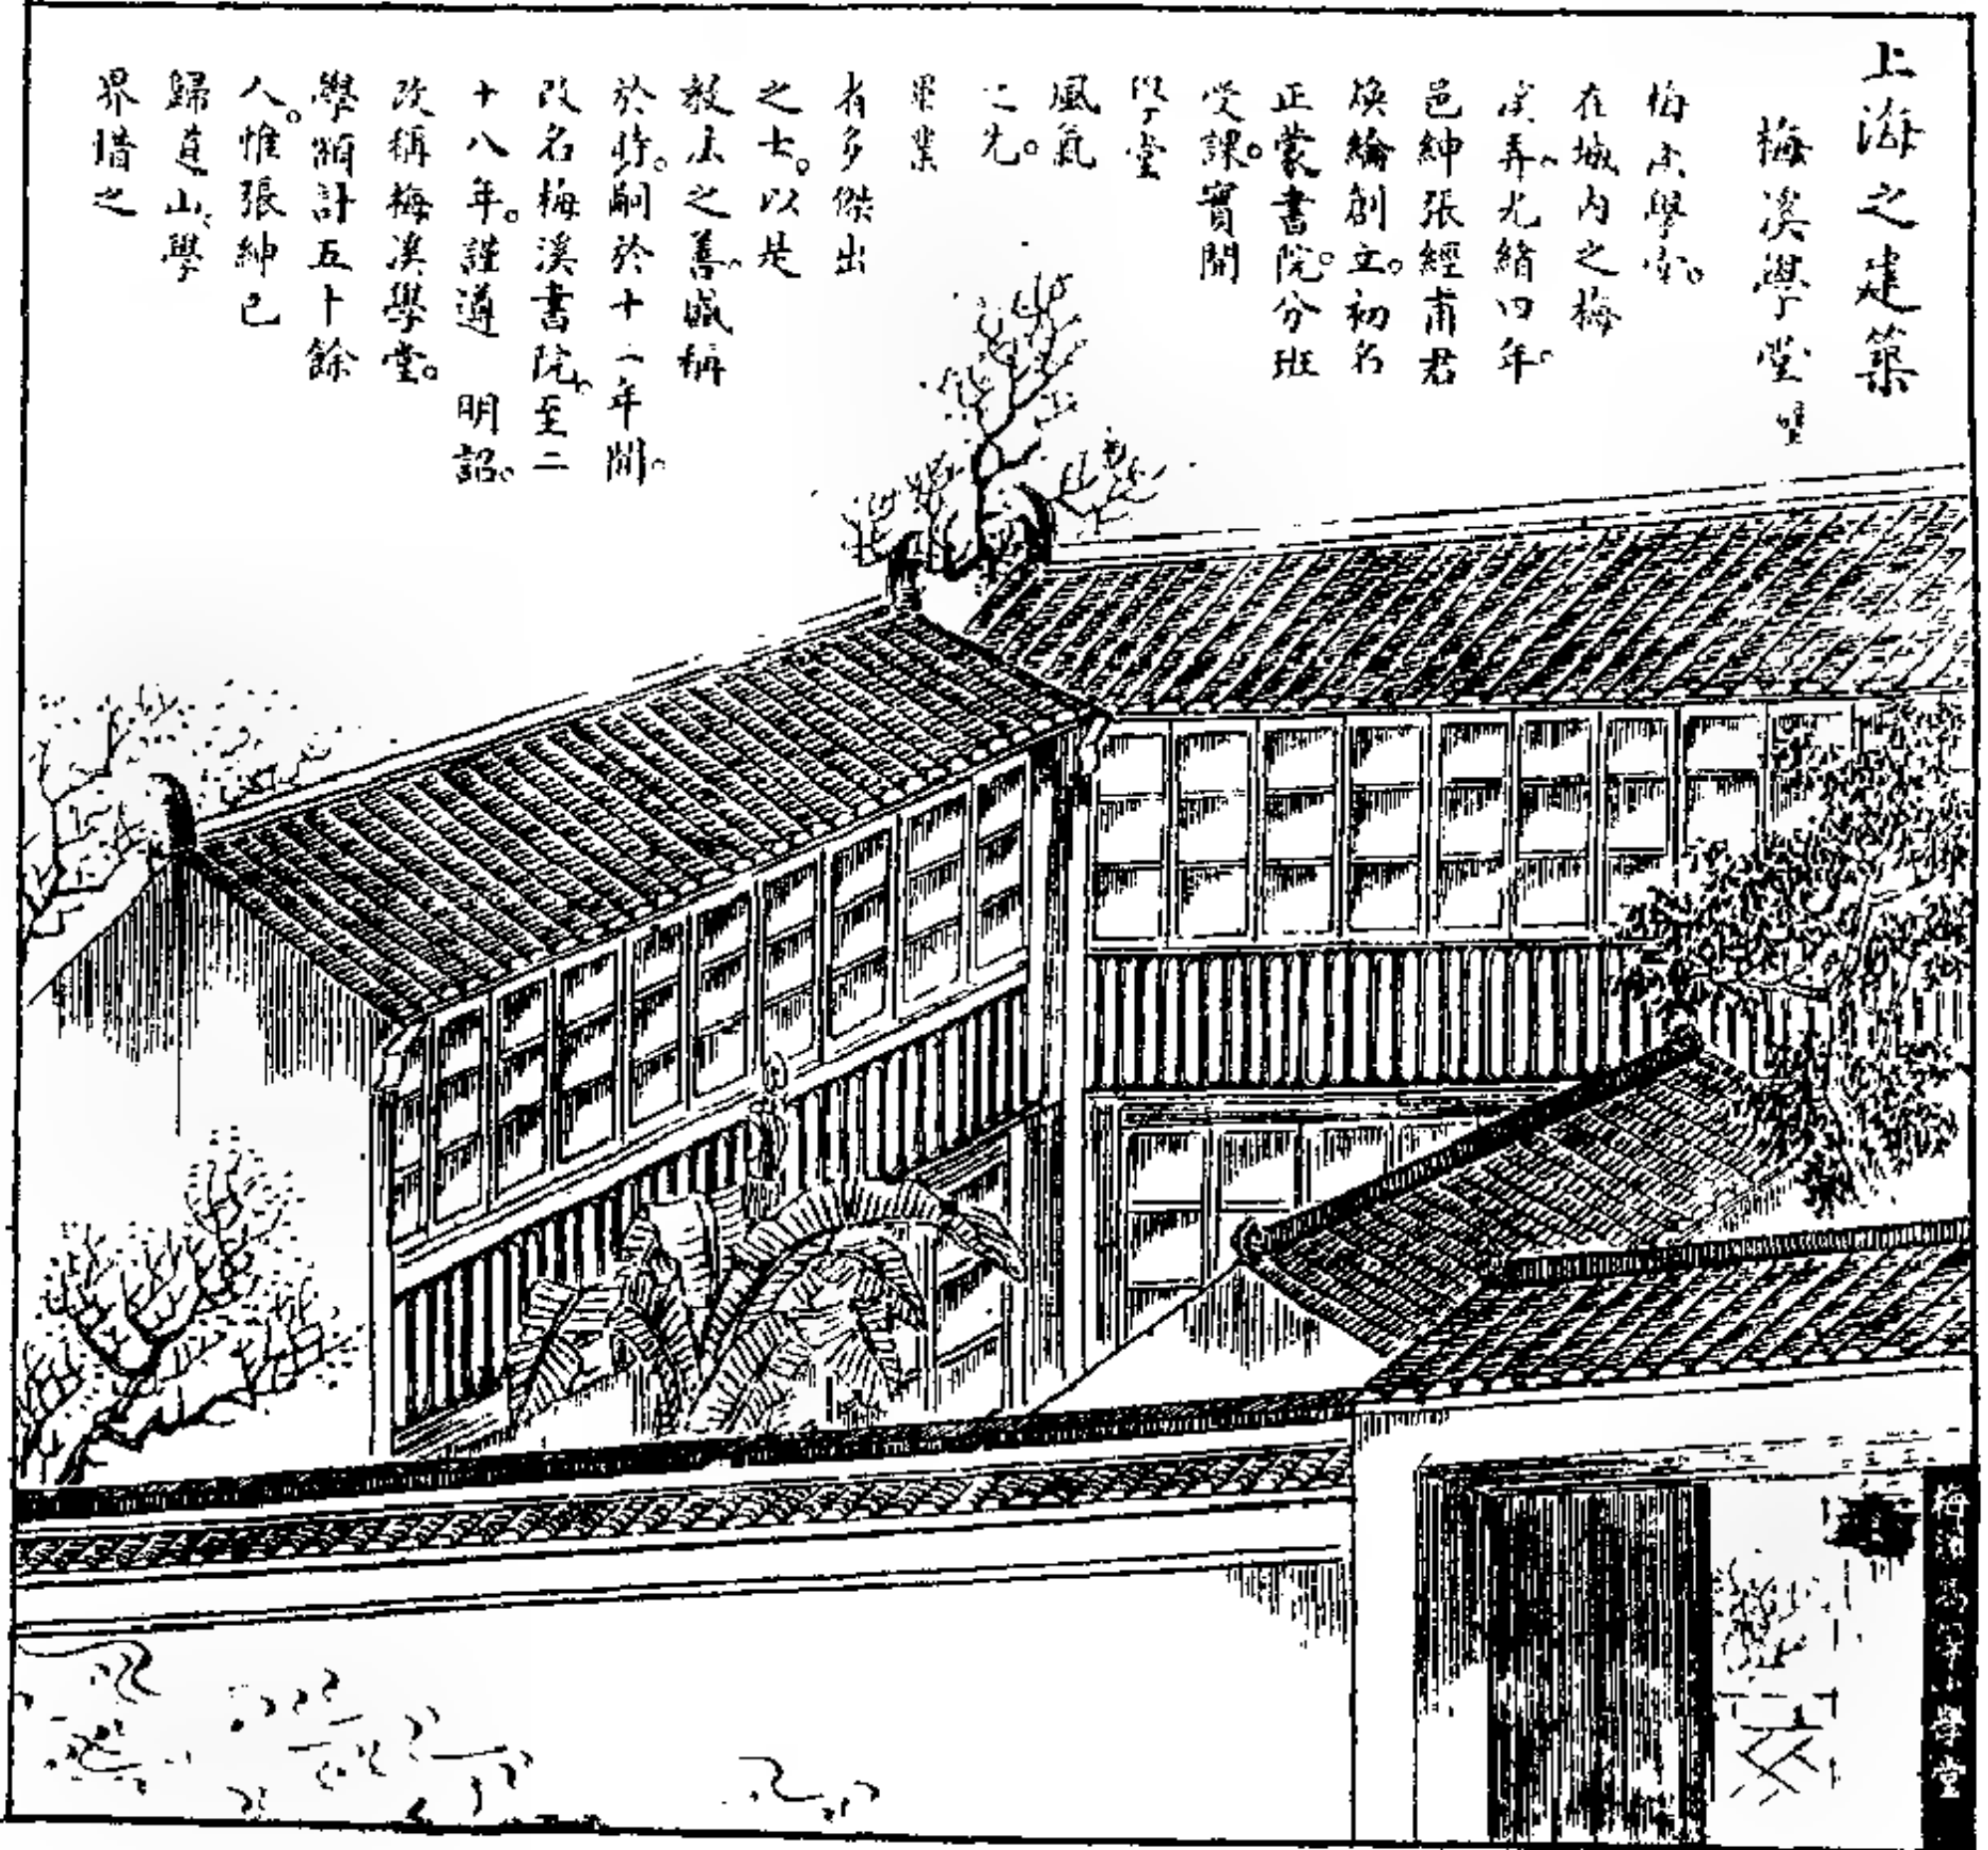 上海之建築
梅溪學堂
梅溪學堂。
在城內之梅
溪弄。光緒四年。
邑紳張經甫君
煥綸創立。初名
正蒙書院。分班
受課。實開
學堂
風氣
之先。
畢業
者多傑出
之士。以是
教法之善。盛稱
於時。嗣於十一年間。
改名梅溪書院。至二
十八年。謹遵 明詔。
改稱梅溪學堂。
學額計五十餘
人。惟張紳已
歸道山、學
界惜之
梅溪高等小學堂